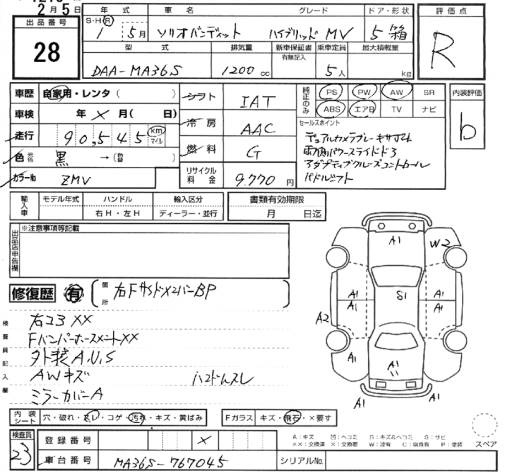 2月5日
出品番号
28
年式 車名 グレード ドア・形状 評価点
S・H・R 1年 5月 ソリオバンデット ハイブリッドMV 5 箱 R
型式 排気量 新車保証書 有無記入 乗車定員 最大積載量
DAA-MA36S 1200cc 5人 kg
車歴 自家用・レンタ( ) シフト IAT 純正のみ PS PW AW SR 内装評価
ABS エアB TV ナビ b
車検 年 × 月( 日) 冷房 AAC
セールスポイント
デュアルカメラブレーキサポート
走行 90,545 km マイル 燃料 G
両側パワースライドドア
アダプティブクルーズコントロール
パドルシフト
色 黒 →
カラーNo ZMV リサイクル料金 9,770円
輸入車 モデル年式 ハンドル 輸入区分 書類有効期限
右H・左H ディーラー・並行 月 日迄
出品店申告欄 ※注意事項等記載
修復歴 有 箇所 右Fサイドメンバー BP
検査員記入欄
右コア××
FバンパーホースメントXX
外装A.U.S
AWキズ ハンドルスレ
ミラーカバーA
A1 W2 A1 A1 S1 A1 A2 A1 A1 A1
内装シート 穴・破れ・スレ・コゲ・汚れ・キズ・黄ばみ Fガラス キズ・飛石・×要す
検査員 23
登録番号 ×
A:キズ U:ヘコミ B:キズ&ヘコミ S:サビ
スペア
車台番号 MA36S-767045 シリアルNo.